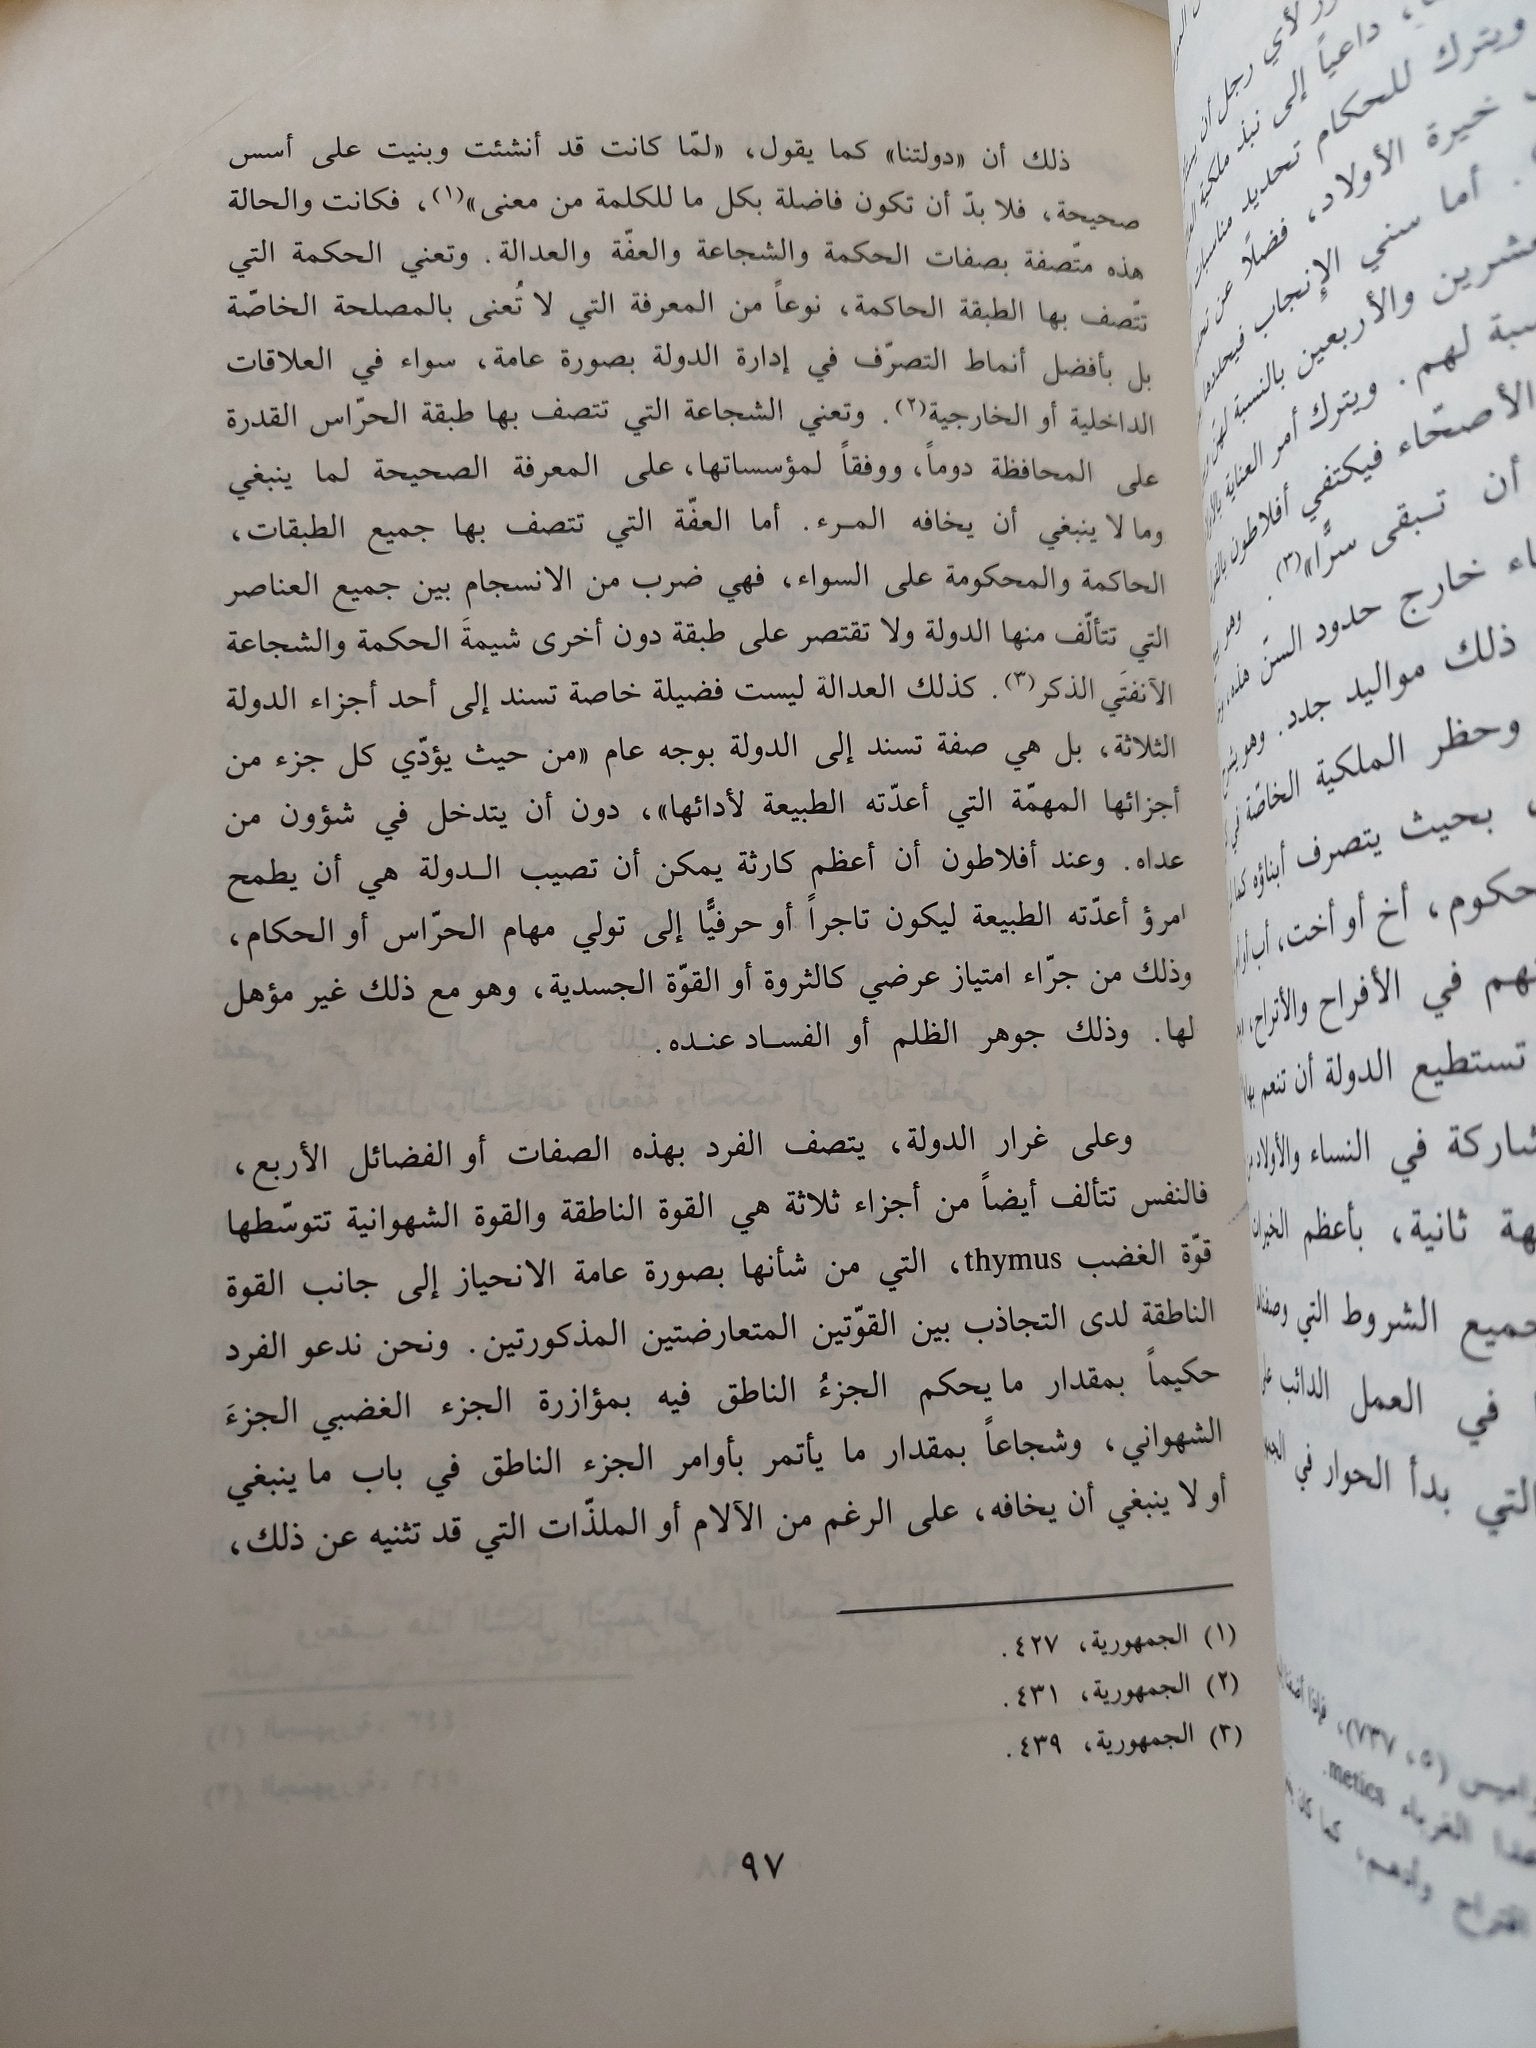 ذلك أن «دولتنا» كما يقول، «لمّا كانت قد أنشئت وبنيت على أسس
صحيحة، فلا بدّ أن تكون فاضلة بكل ما للكلمة من معنى»(١)، فكانت والحالة
هذه متّصفة بصفات الحكمة والشجاعة والعفّة والعدالة. وتعني الحكمة التي
تتّصف بها الطبقة الحاكمة، نوعاً من المعرفة التي لا تُعنى بالمصلحة الخاصّة
بل بأفضل أنماط التصرّف في إدارة الدولة بصورة عامة، سواء في العلاقات
الداخلية أو الخارجية(٢). وتعني الشجاعة التي تتصف بها طبقة الحرّاس القدرة
على المحافظة دوماً، ووفقاً لمؤسساتها، على المعرفة الصحيحة لما ينبغي
وما لا ينبغي أن يخافه المرء. أما العفّة التي تتصف بها جميع الطبقات،
الحاكمة والمحكومة على السواء، فهي ضرب من الانسجام بين جميع العناصر
التي تتألّف منها الدولة ولا تقتصر على طبقة دون أخرى شيمةَ الحكمة والشجاعة
الآنفتَي الذكر(٣). كذلك العدالة ليست فضيلة خاصة تسند إلى أحد أجزاء الدولة
الثلاثة، بل هي صفة تسند إلى الدولة بوجه عام «من حيث يؤدّي كل جزء من
أجزائها المهمّة التي أعدّته الطبيعة لأدائها»، دون أن يتدخل في شؤون من
عداه. وعند أفلاطون أن أعظم كارثة يمكن أن تصيب الدولة هي أن يطمح
امرؤ أعدّته الطبيعة ليكون تاجراً أو حرفيًّا إلى تولي مهام الحرّاس أو الحكام،
وذلك من جرّاء امتياز عرضي كالثروة أو القوّة الجسدية، وهو مع ذلك غير مؤهل
لها. وذلك جوهر الظلم أو الفساد عنده.
وعلى غرار الدولة، يتصف الفرد بهذه الصفات أو الفضائل الأربع،
فالنفس تتألف أيضاً من أجزاء ثلاثة هي القوة الناطقة والقوة الشهوانية تتوسّطها
قوّة الغضب thymus، التي من شأنها بصورة عامة الانحياز إلى جانب القوة
الناطقة لدى التجاذب بين القوّتين المتعارضتين المذكورتين. ونحن ندعو الفرد
حكيماً بمقدار ما يحكم الجزءُ الناطق فيه بمؤازرة الجزء الغضبي الجزءَ
الشهواني، وشجاعاً بمقدار ما يأتمر بأوامر الجزء الناطق في باب ما ينبغي
أو لا ينبغي أن يخافه، على الرغم من الآلام أو الملذّات التي قد تثنيه عن ذلك،
(١) الجمهورية، ٤٢٧.
(٢) الجمهورية، ٤٣١.
(٣) الجمهورية، ٤٣٩.
٩٧
لأي رجل أن
داعياً إلى نبذ ملكية
ويترك للحكام تحديد مناسبات
خيرة الأولاد، فضلاً عن
. أما سني الإنجاب
والأربعين بالنسبة
لهم. ويترك أمر العناية
الأصحّاء فيكتفي أفلاطون
أن تبقى سرًّا»(٣). وهو
خارج حدود السن هذه،
ذلك مواليد جدد. وهو
وحظر الملكية الخاصّة في
، بحيث يتصرف أبناؤه
، أخ أو أخت، أب أو
في الأفراح والأتراح،
تستطيع الدولة أن تنعم بها
في النساء والأولاد
ثانية، بأعظم الخيرات
الشروط التي
في العمل الدائب
التي بدأ الحوار في
(٥، ٧٣٧)، فإذا
الغرباء metics.
كما كان